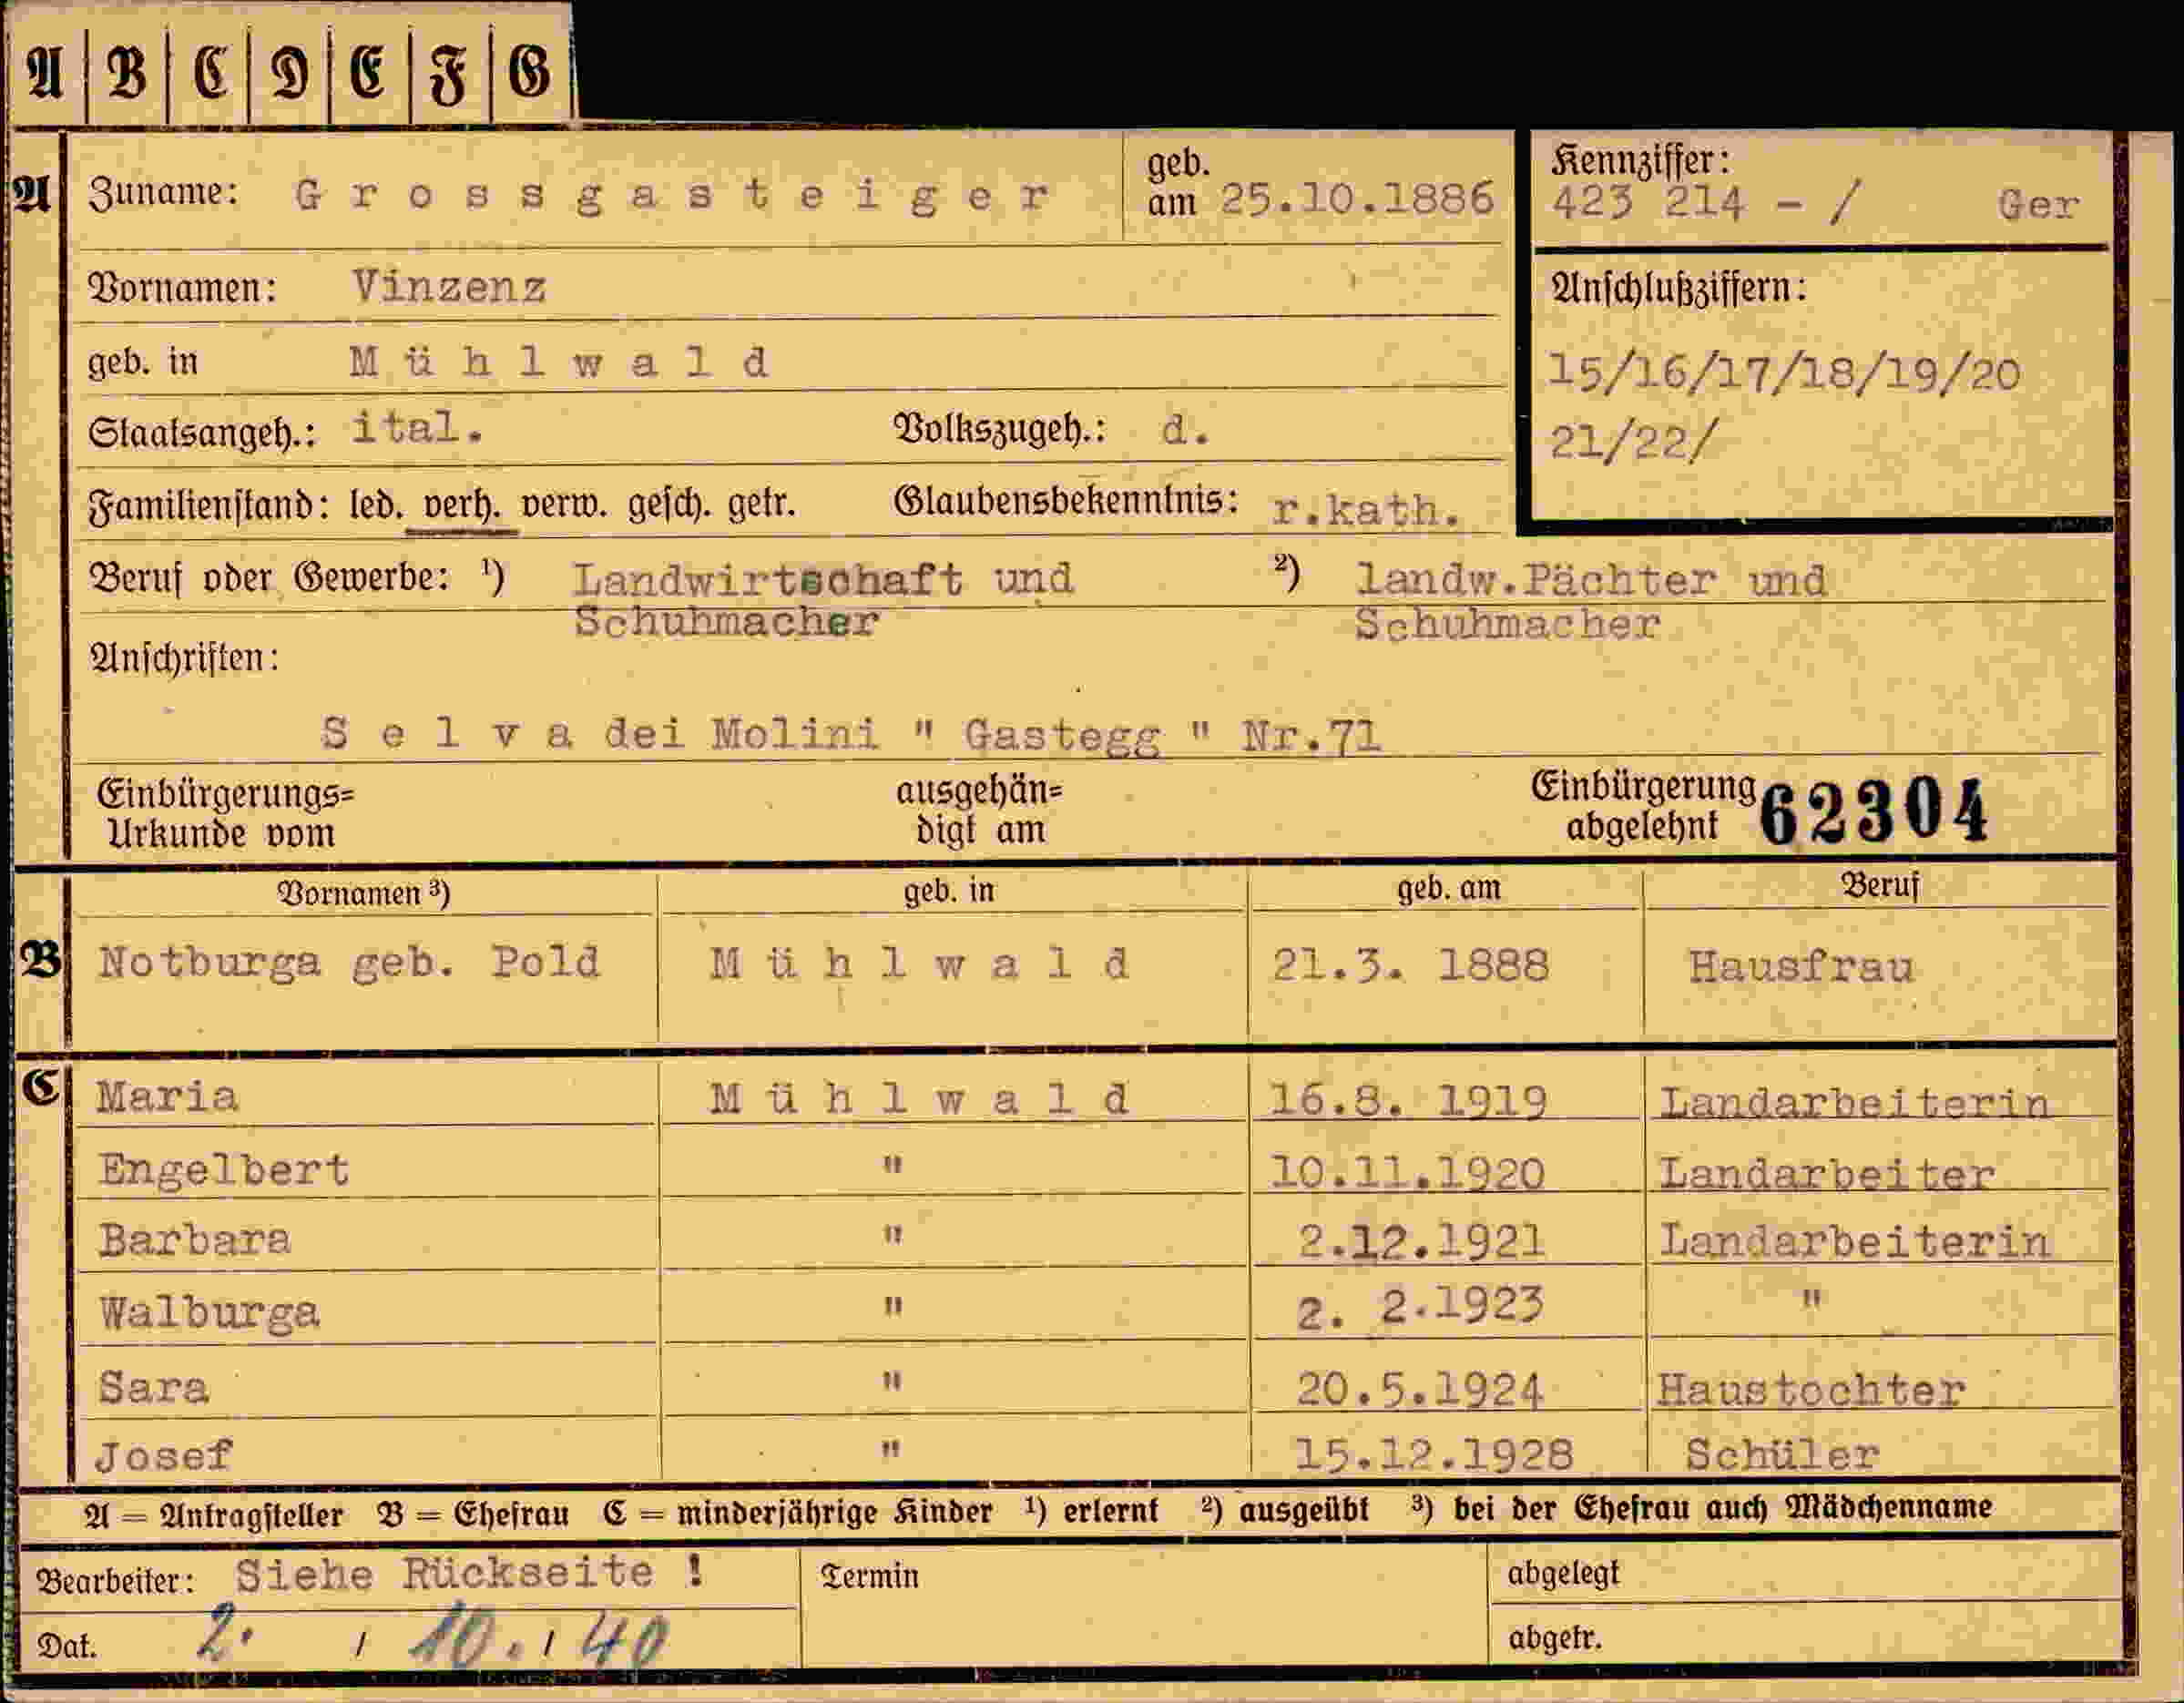 A B C D E F G
A Zuname: Grossgasteiger geb. am 25.10.1886 Kennziffer: 423 214 - / Ger
Vornamen: Vinzenz
Anschlußziffern:
geb. in Mühlwald
15/16/17/18/19/20
Staatsangeh.: ital. Volkszugeh.: d.
21/22/
Familienstand: led. verh. verw. gesch. getr. Glaubensbekenntnis: r.kath.
Beruf oder Gewerbe: ¹) Landwirtschaft und ²) landw.Pächter und
Schuhmacher Schuhmacher
Anschriften:
Selva dei Molini " Gastegg " Nr.71
Einbürgerungs= ausgehän= Einbürgerung 62304
Urkunde vom digt am abgelehnt
Vornamen ³) geb. in geb. am Beruf
B Notburga geb. Pold Mühlwald 21.3. 1888 Hausfrau
C Maria Mühlwald 16.8. 1919 Landarbeiterin
Engelbert " 10.11.1920 Landarbeiter
Barbara " 2.12.1921 Landarbeiterin
Walburga " 2. 2.1923 "
Sara " 20.5.1924 Haustochter
Josef " 15.12.1928 Schüler
A = Antragsteller B = Ehefrau C = minderjährige Kinder ¹) erlernt ²) ausgeübt ³) bei der Ehefrau auch Mädchenname
Bearbeiter: Siehe Rückseite ! Termin abgelegt
Dat. 2. / 10. / 40 abgetr.